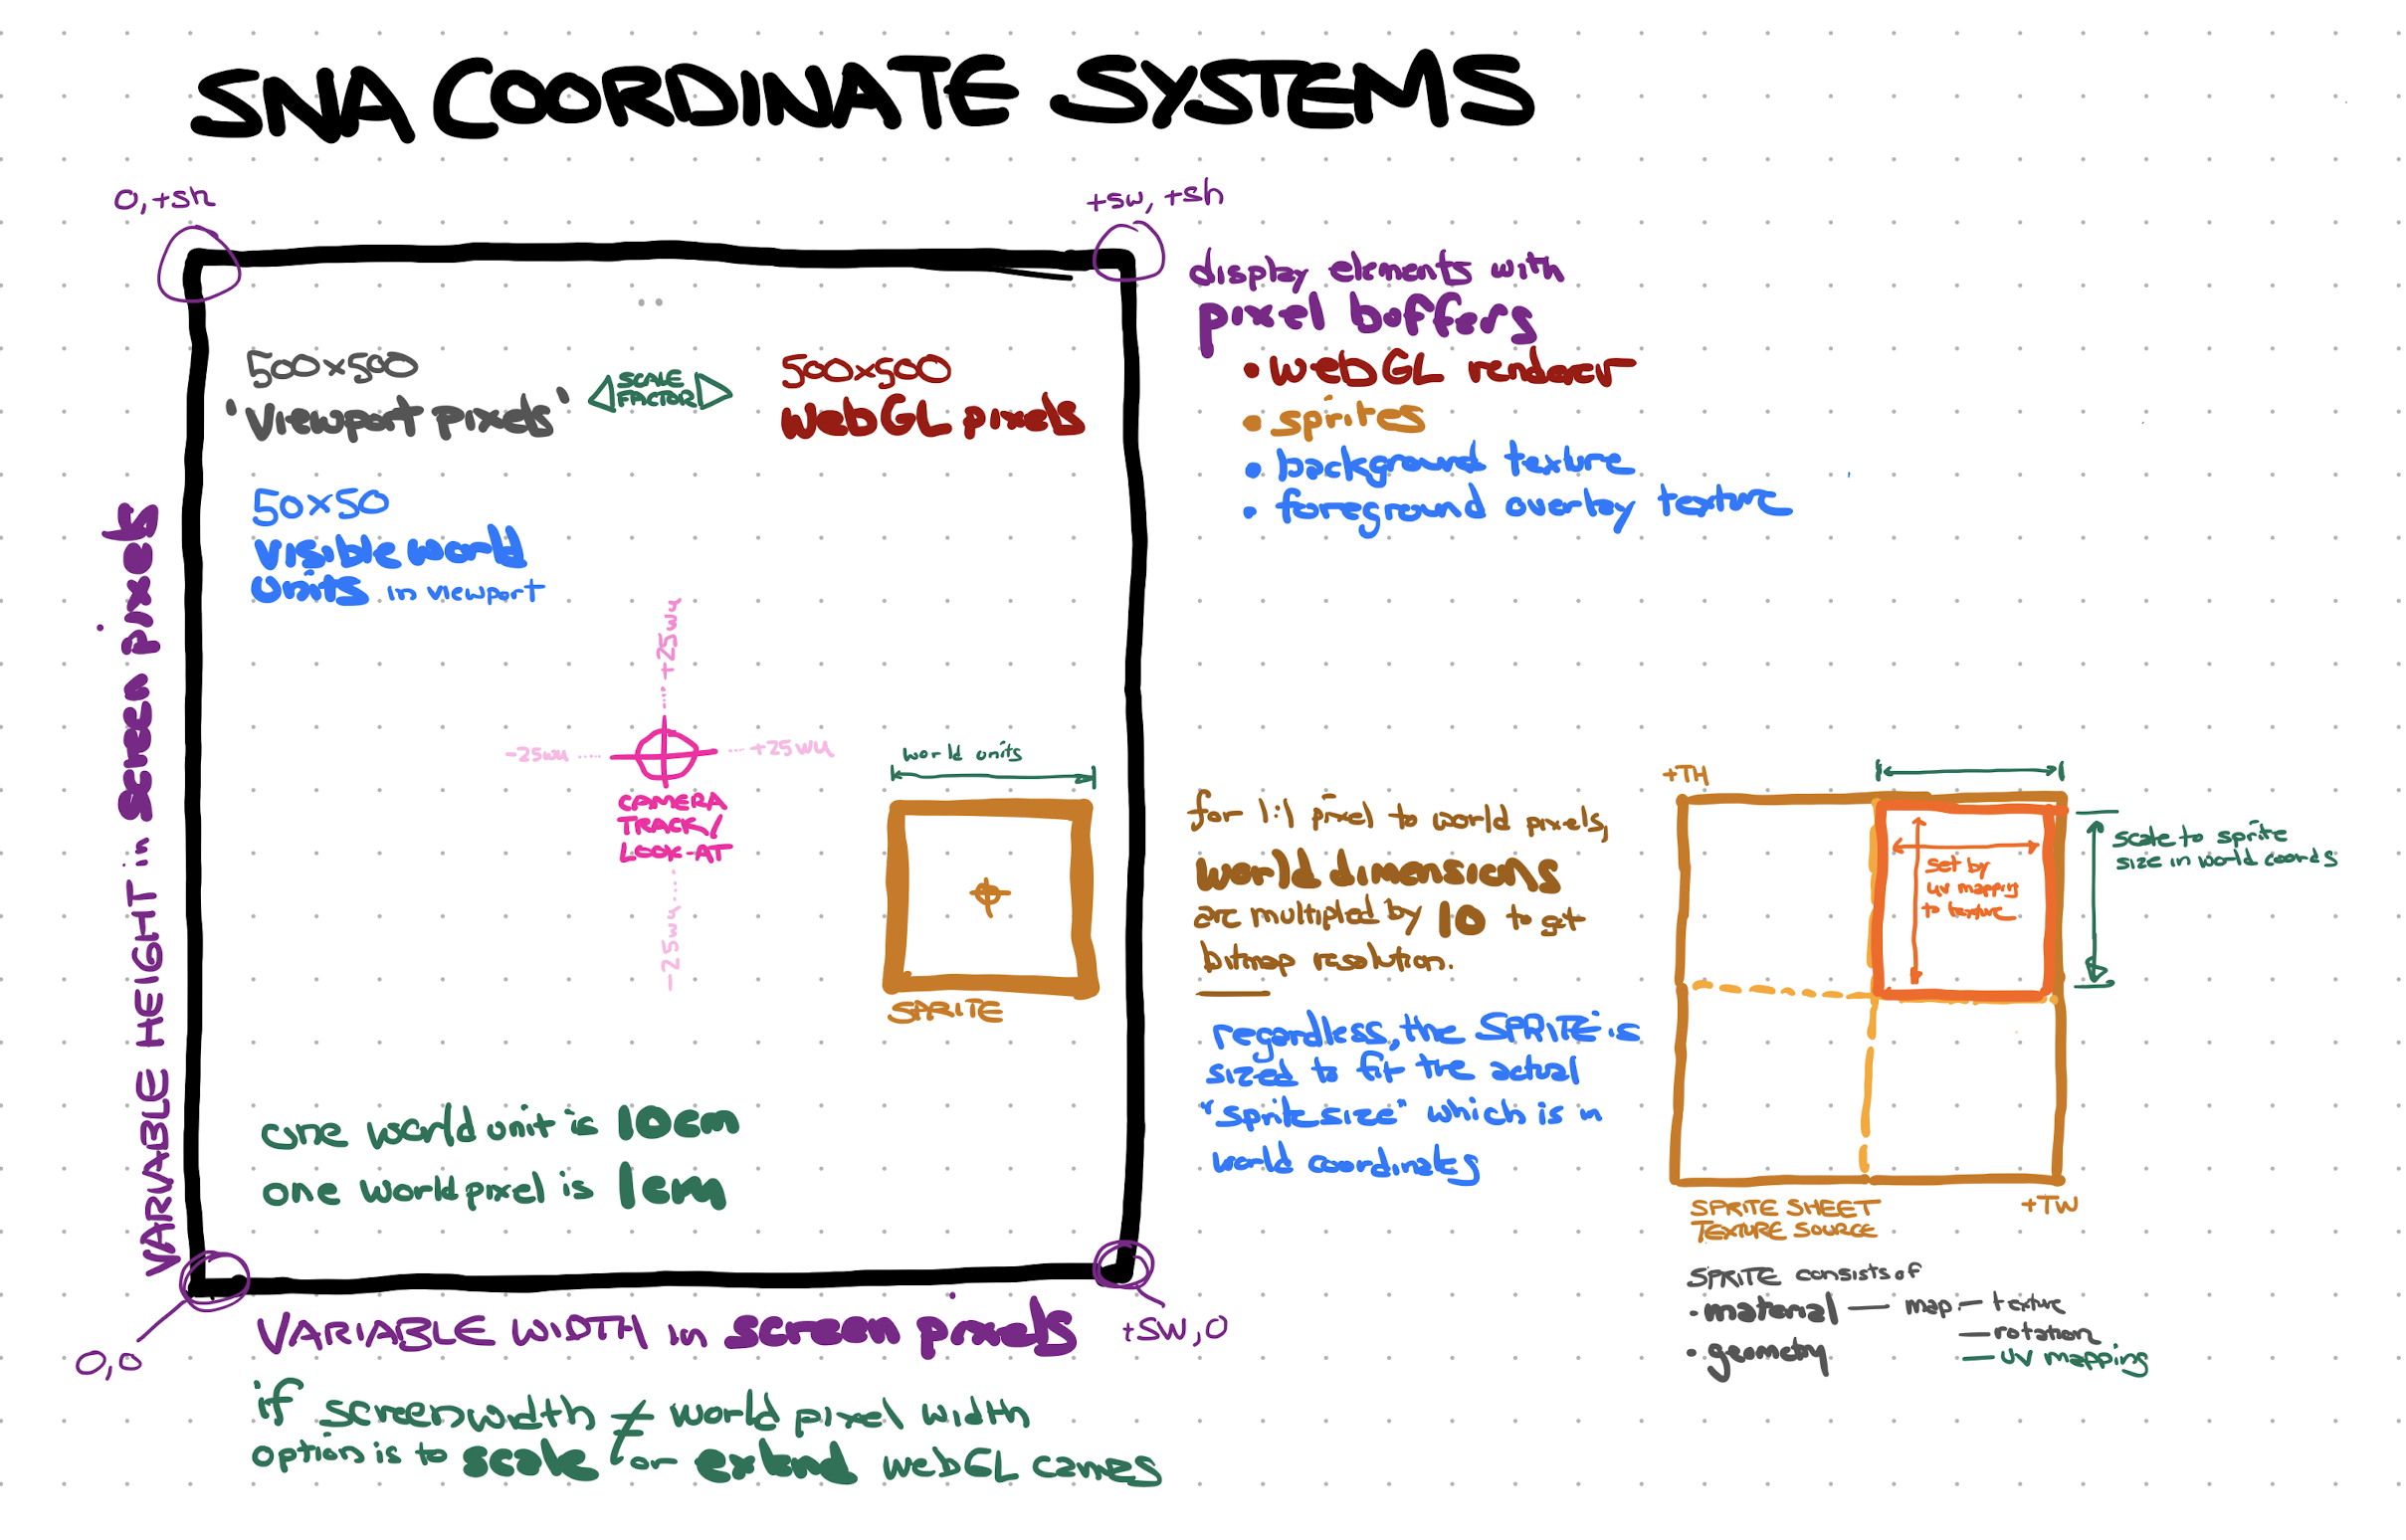 SNA COORDINATE SYSTEMS
0,+sh
+sw, +sh
500x500
'viewport pixels'
SCALE
FACTOR
500x500
WebGL pixels
50x50
visible world
units in viewport
display elements with
pixel buffers
• webGL renderer
• sprites
• background texture
• foreground overlay texture
VARIABLE HEIGHT in screen pixels
+25wu
-25wu
+25wu
CAMERA
TRACK/
LOOK-AT
-25wu
world units
SPRITE
for 1:1 pixel to world pixels,
world dimensions
are multipled by 10 to get
bitmap resolution.
regardless, the SPRITE is
sized to fit the actual
"sprite size" which is in
world coordinates
+TH
set by
uv mapping
to texture
scale to sprite
size in world coords
SPRITE SHEET
TEXTURE SOURCE
+TW
SPRITE consists of
• material — map — texture
— rotation
— uv mapping
• geometry
one world unit is 10cm
one world pixel is 1cm
0,0
VARIABLE WIDTH in screen pixels
+SW,0
if screenwidth ≠ world pixel width
option is to scale or extend webGL canvas